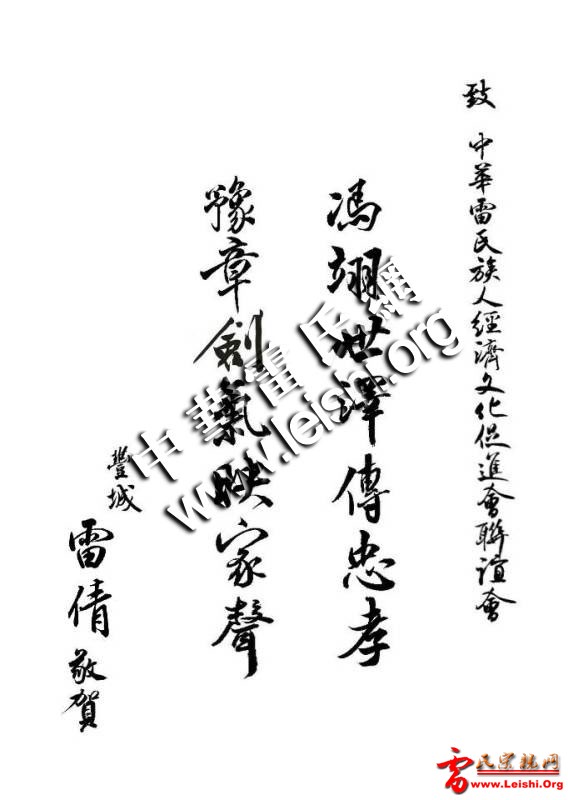 致 中華雷氏族人經濟文化促進會聯誼會
馮翊世澤傳忠孝
豫章劍氣映家聲
豐城
雷倩 敬賀
中華雷氏網
www.leishi.org
雷氏宗親网
www.Leishi.Org